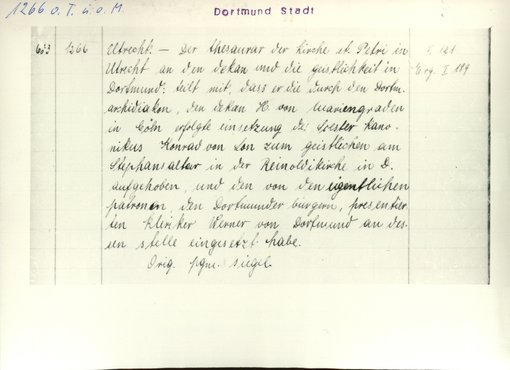 1266 o. T. u. o. M.
Dortmund Stadt
653 1266 Utrecht. – Der thesaurar der kirche st. Petri in I. 121
Utrecht an den dekan und die geistlichkeit in Erg. I 189
Dortmund: teilt mit, dass er die durch den Dortm.
archidiakon, den dekan H. von Mariengraden
in Cöln erfolgte einsetzung des Soester kano-
nikus Konrad von Lon zum geistlichen am
Stephansaltar in der Reinoldikirche in D.
aufgehoben, und den von den eigentlichen
patronen, den Dortmunder bürgern, presentier-
ten kleriker Werner von Dortmund an des-
sen stelle eingesetzt habe.
Orig. pgm. siegel.